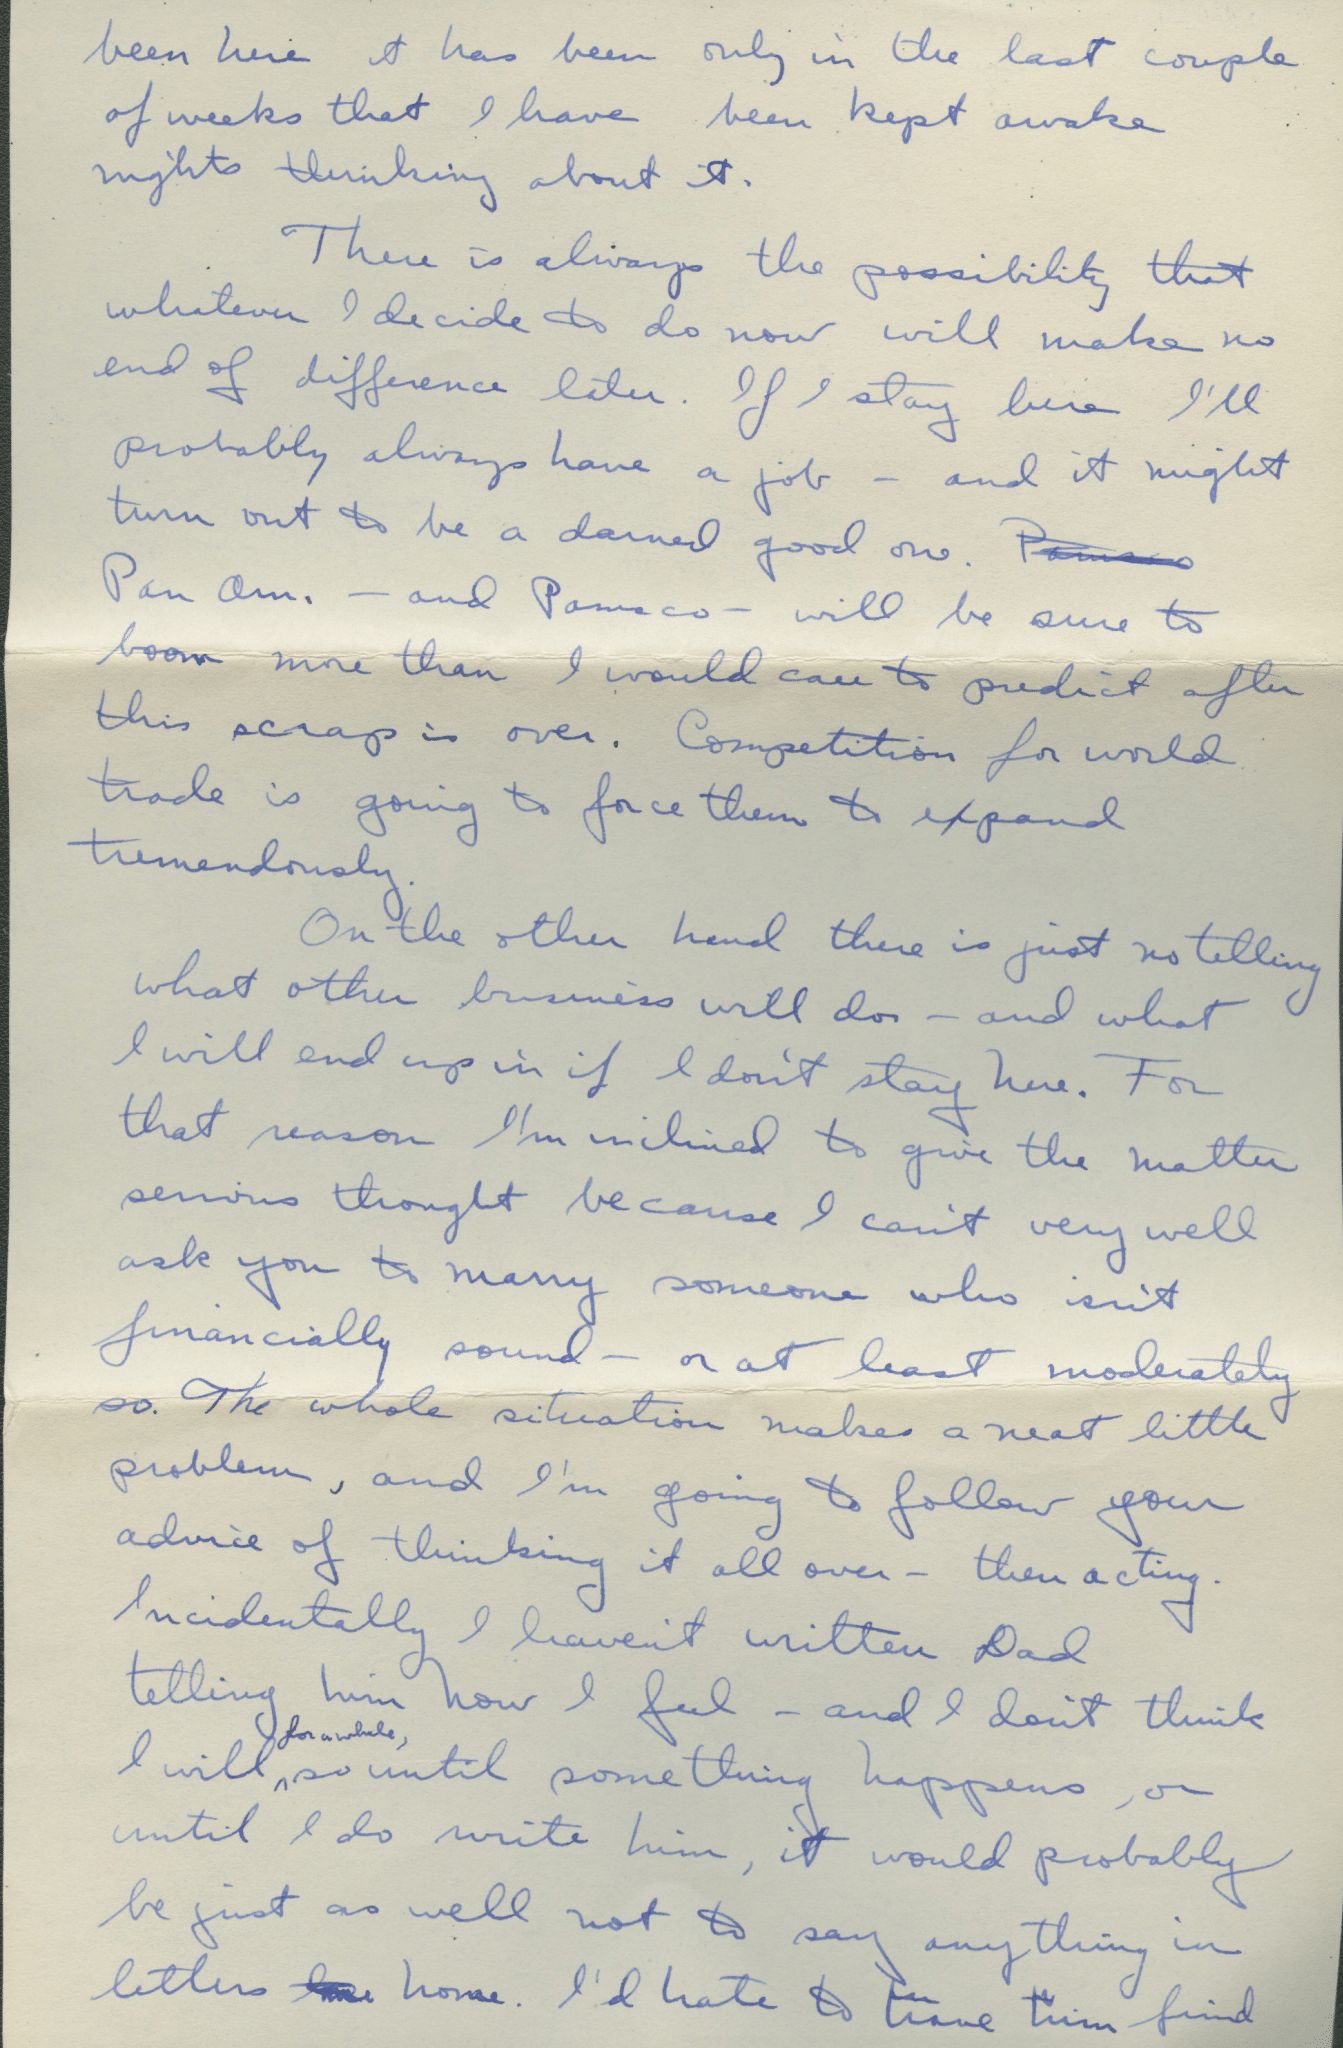 been here it has been only in the last couple
of weeks that I have been kept awake
nights thinking about it.
There is always the possibility that
whatever I decide to do now will make no
end of difference later. If I stay here I'll
probably always have a job – and it might
turn out to be a darned good one. Pamsco
Pan Am. – and Pamsco – will be sure to
boom more than I would care to predict after
this scrap is over. Competition for world
trade is going to force them to expand
tremendously.
On the other hand there is just no telling
what other business will do – and what
I will end up in if I don't stay here. For
that reason I'm inclined to give the matter
serious thought because I can't very well
ask you to marry someone who isn't
financially sound – or at least moderately
so. The whole situation makes a neat little
problem, and I'm going to follow your
advice of thinking it all over – then acting.
Incidentally I haven't written Dad
telling him how I feel – and I don't think
I will, for awhile, so until something happens, or
until I do write him, it would probably
be just as well not to say anything in
letters home. I'd hate to have him find